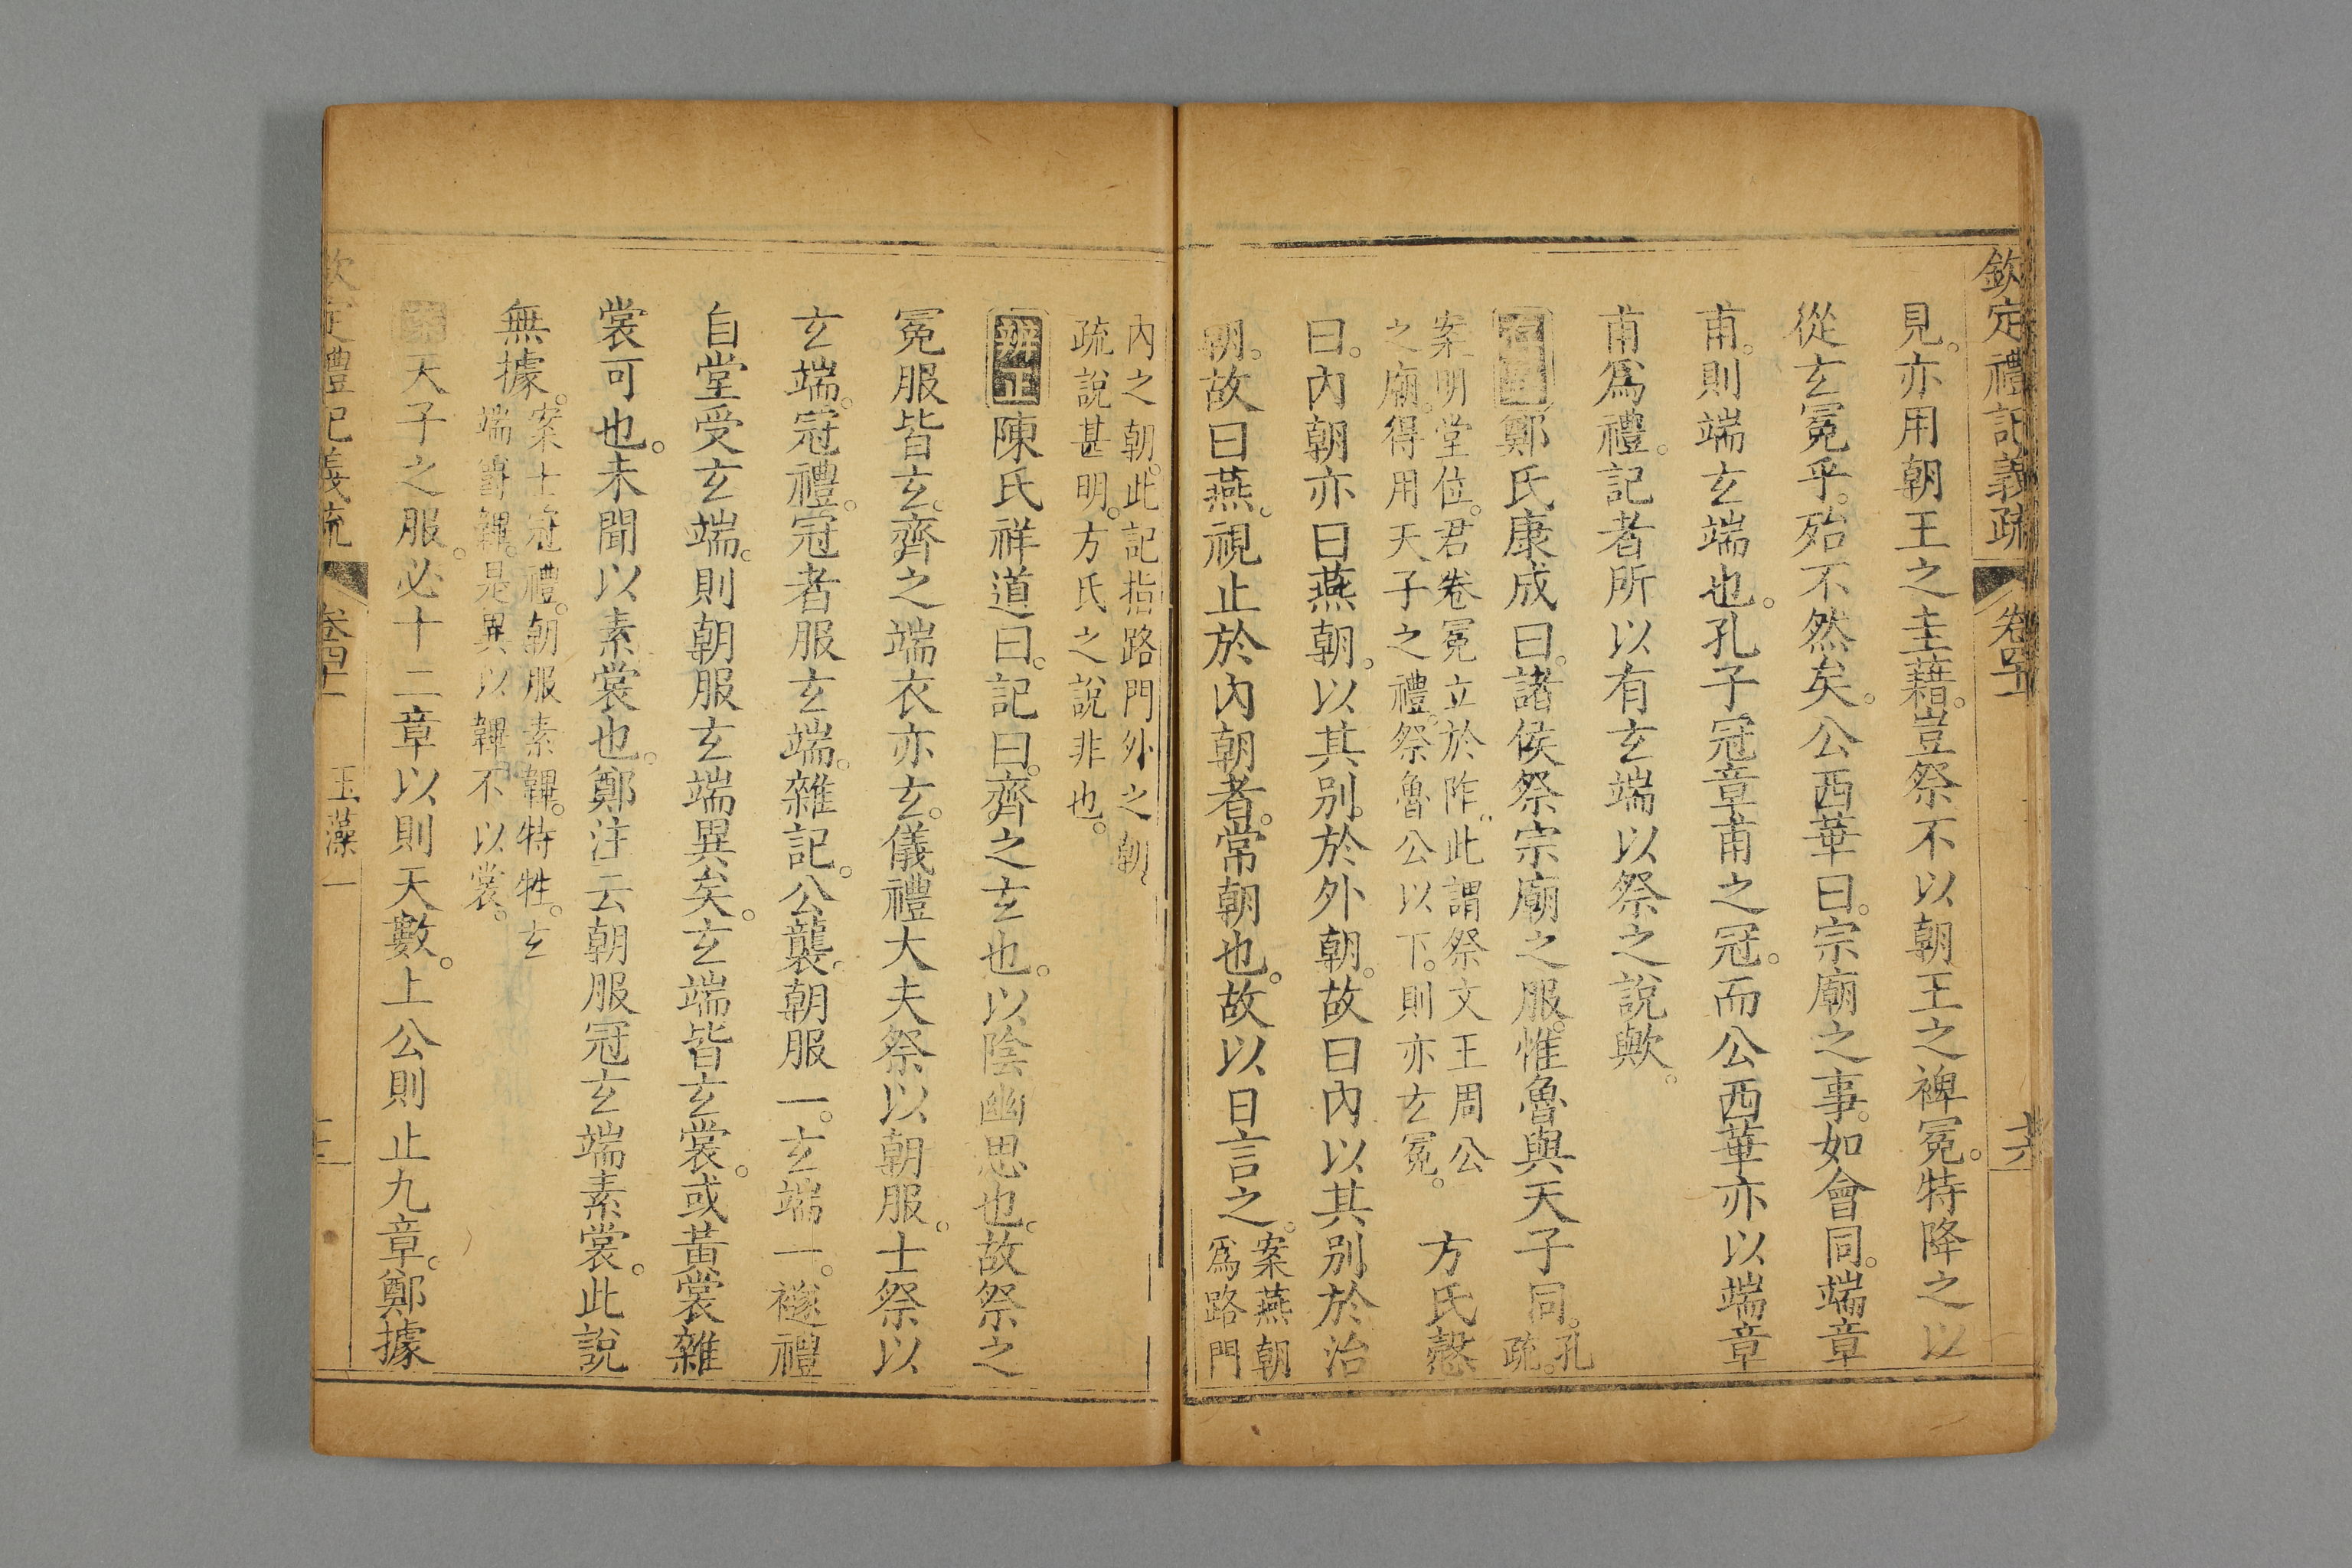 欽定禮記義疏 卷四十一
見。亦用朝王之圭藉。豈祭不以朝王之裨冕。特降之以
從玄冕乎。殆不然矣。公西華曰。宗廟之事。如會同。端章
甫。則端玄端也。孔子冠章甫之冠。而公西華亦以端章
甫爲禮。記者所以有玄端以祭之說歟。
鄭氏康成曰。諸侯祭宗廟之服。惟魯與天子同。孔
疏。
案明堂位。君卷冕立於阼。此謂祭文王周公
之廟。得用天子之禮。祭魯公以下。則亦玄冕。
方氏慤
曰。內朝亦曰燕朝。以其別於外朝。故曰內以其別於治
朝。故曰燕。視止於內朝者。常朝也。故以日言之。案燕朝
爲路門
內之朝。此記指路門外之朝
疏說甚明。方氏之說非也。
辨正陳氏祥道曰。記曰。齊之玄也。以陰幽思也。故祭之
冕服皆玄。齊之端衣亦玄。儀禮大夫祭以朝服。士祭以
玄端。冠禮。冠者服玄端。雜記。公襲。朝服一。玄端一。襚禮
自堂受玄端。則朝服玄端異矣。玄端皆玄裳。或黃裳雜
裳可也。未聞以素裳也。鄭注云朝服冠玄端素裳。此說
無據。案士冠禮。朝服素韠。特牲。玄
端爵韠。是異以韠不以裳。
案天子之服。必十二章以則天數。上公則止九章。鄭據
欽定禮記義疏 卷四十一 玉藻一